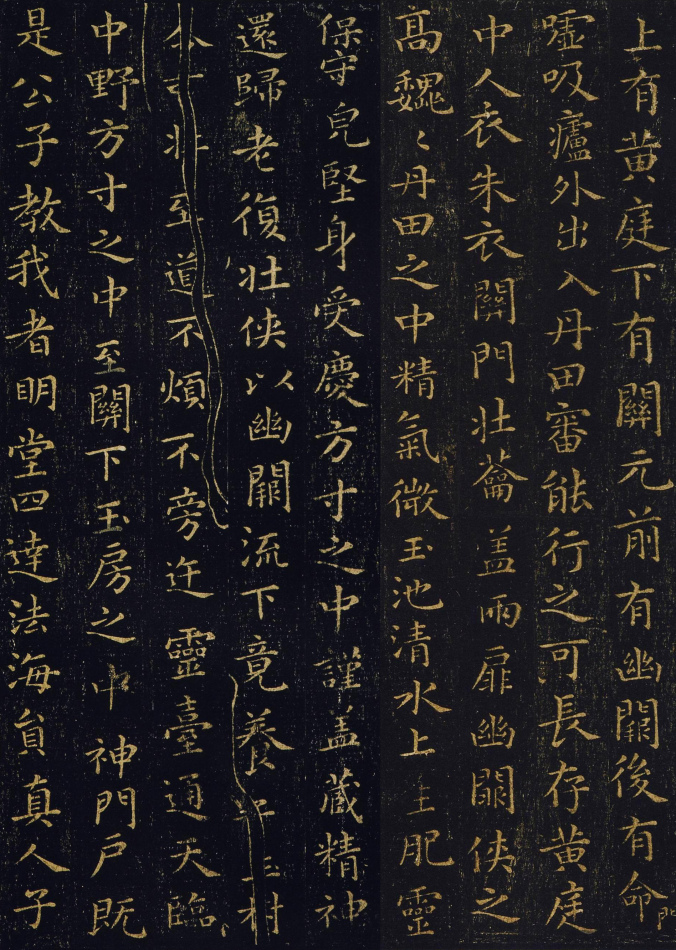 上有黄庭下有關元前有幽闕後有命門
嘘吸廬外出入丹田審能行之可長存黄庭
中人衣朱衣關門壮蘥盖兩扉幽闕侠之
高魏〻丹田之中精氣微玉池清水上生肥靈
保守皃堅身受慶方寸之中謹盖藏精神
還歸老復壮侠以幽闕流下竟養子玉樹
令可壮至道不煩不旁迕靈臺通天臨
中野方寸之中至關下玉房之中神門户既
是公子教我者明堂四達法海負真人子